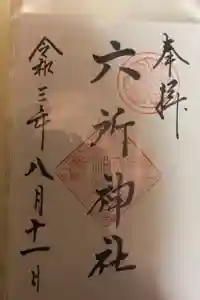 奉拝
六所神社
令和三年八月十一日